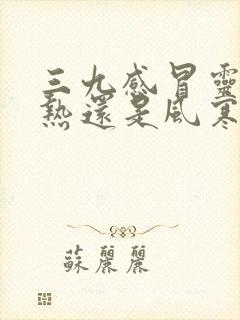 三九感冒靈
熱還是風寒
蘇麗麗